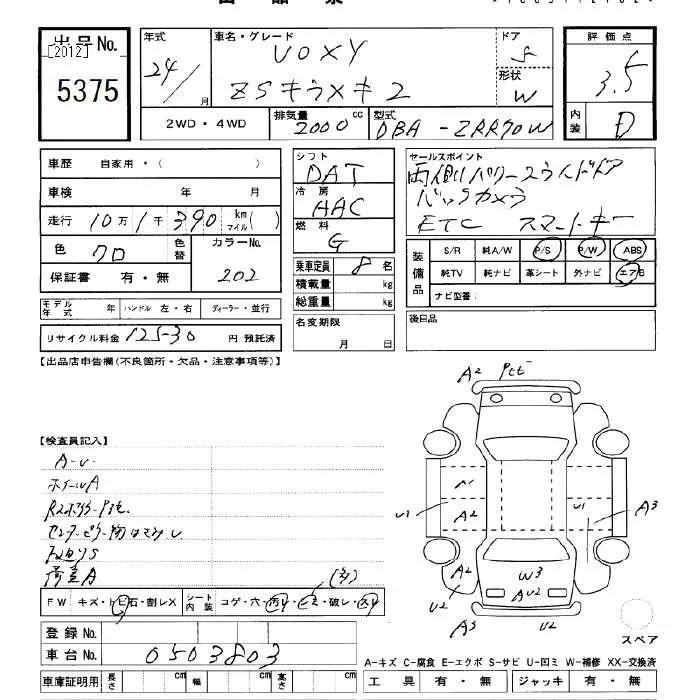 出品No.
[2012]
5375
年式
24/
月
車名・グレード
VOXY
ZSキラメキ2
ドア
5
形状
W
評価点
3.5
内装
D
2WD・4WD
排気量
2000
cc
型式
DBA-ZRR70W
車歴 自家用・( )
車検 年 月
走行 10万1千390 km マイル( )
色 クロ
色替
カラーNo.
202
保証書 有・無
モデル年式 年
ハンドル 左・右
ディーラー・並行
リサイクル料金 12530 円 預託済
シフト
DAT
冷房
AAC
燃料
G
乗車定員 8 名
積載量 kg
総重量 kg
名変期限
月 日
セールスポイント
両側パワースライドドア
バックカメラ
ETC スマートキー
装備品
S/R 純A/W P/S P/W ABS
純TV 純ナビ 革シート 外ナビ エアB
ナビ型番:
後日品
【出品店申告欄(不良箇所・欠品・注意事項等)】
【検査員記入】
A-U-
ホイールA
荷室A
(多)
FW キズ・トビ石・割レX
シート内装
コゲ・穴・汚レ・ビス・破レ・スレ
登録No.
車台No. 0503803
車庫証明用 長さ cm 幅 cm 高さ cm
A2
A1
A2
U1
U1
A3
A2
U2
W3
AU2
A2
U2
A3
スペア
A-キズ C-腐食 E-エクボ S-サビ U-凹ミ W-補修 XX-交換済
工具 有・無 ジャッキ 有・無